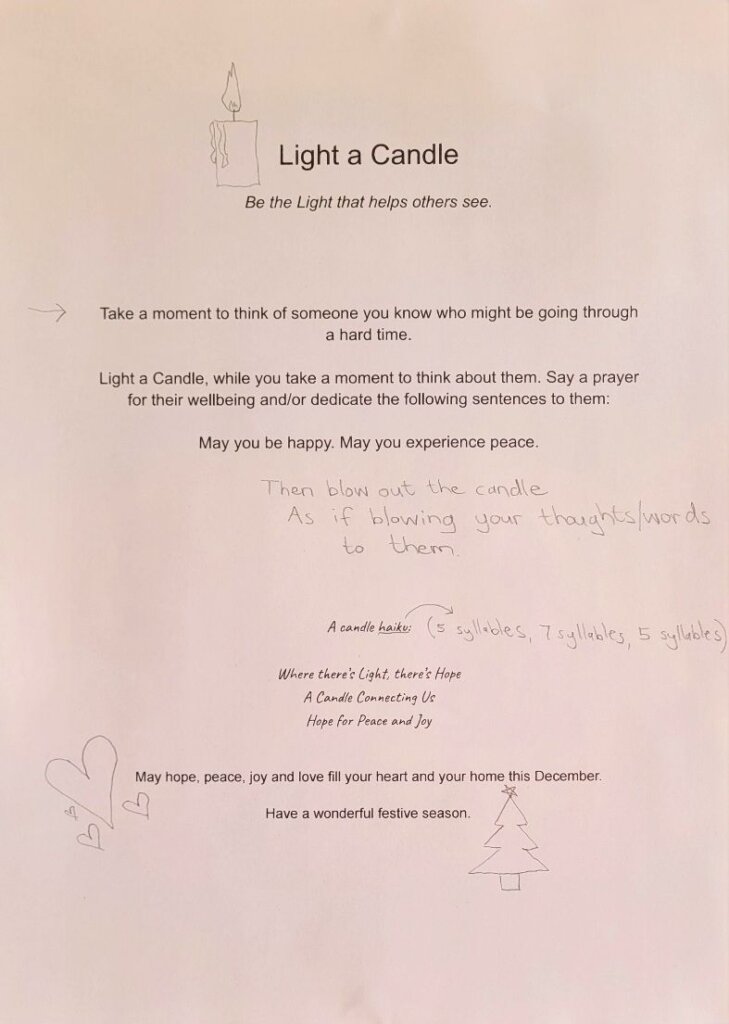 Light a Candle
Be the Light that helps others see.
Take a moment to think of someone you know who might be going through
a hard time.
Light a Candle, while you take a moment to think about them. Say a prayer
for their wellbeing and/or dedicate the following sentences to them:
May you be happy. May you experience peace.
Then blow out the candle
As if blowing your thoughts/words
to them.
A candle haiku: (5 syllables, 7 syllables, 5 syllables)
Where there's Light, there's Hope
A Candle Connecting Us
Hope for Peace and Joy
May hope, peace, joy and love fill your heart and your home this December.
Have a wonderful festive season.